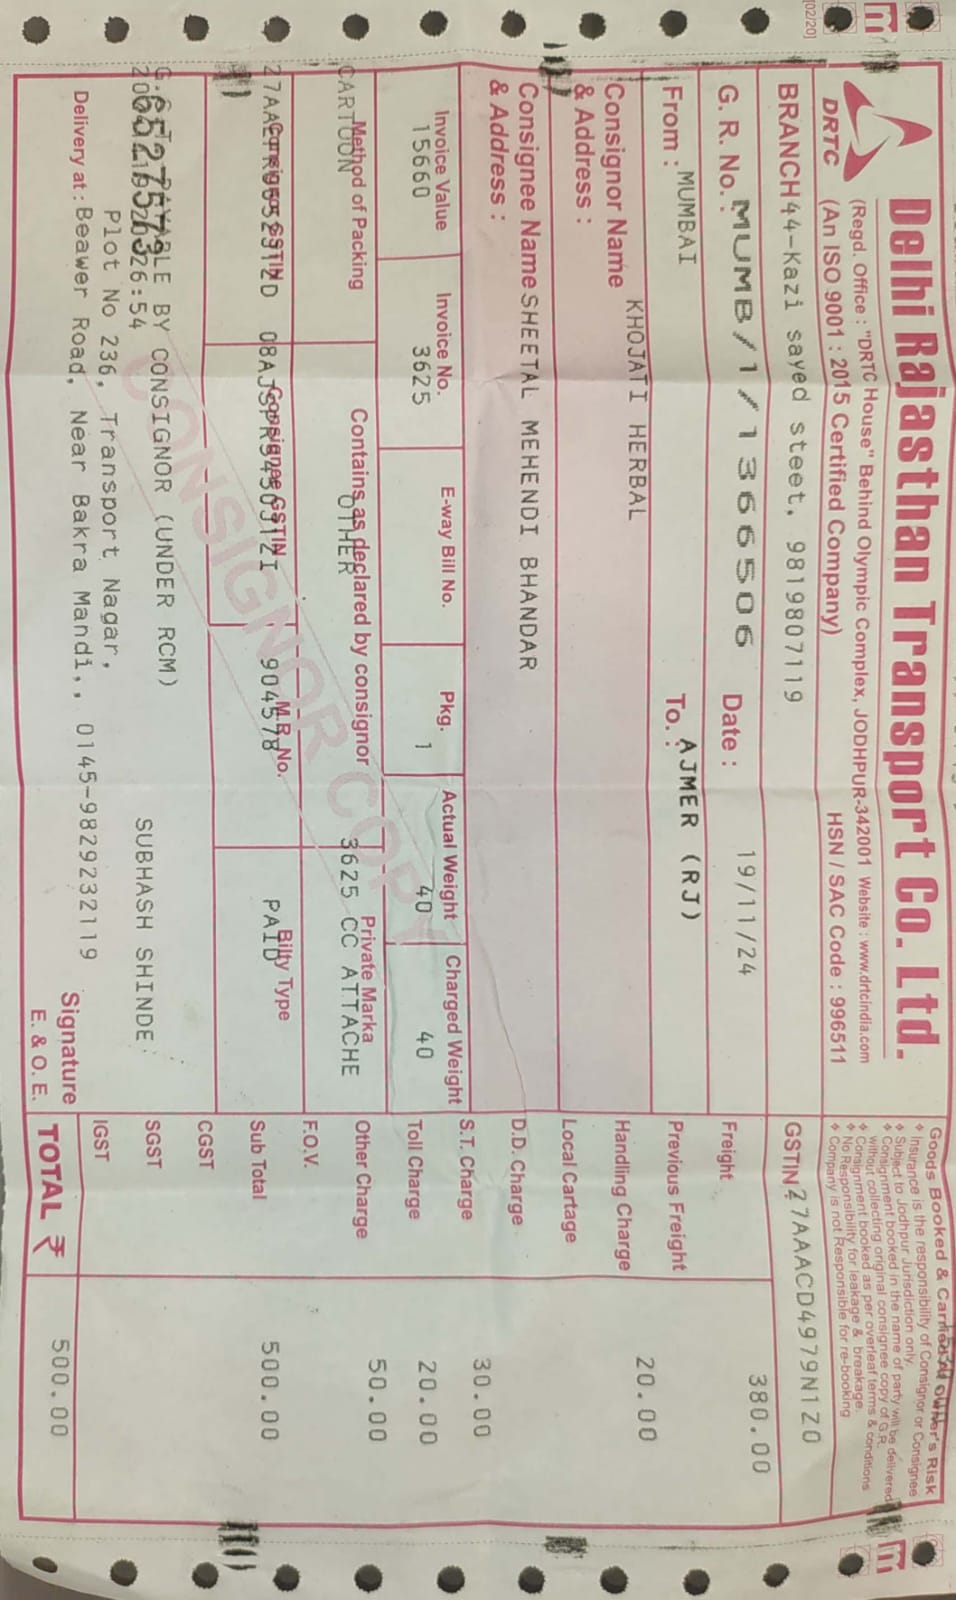 [02/20]
DRTC
Delhi Rajasthan Transport Co. Ltd.
(Regd. Office : "DRTC House" Behind Olympic Complex, JODHPUR-342001 Website : www.drtcindia.com
(An ISO 9001 : 2015 Certified Company)
HSN / SAC Code : 996511
Goods Booked & Carried at owner's Risk
Insurance is the responsibility of Consignor or Consignee
Subject to Jodhpur Jurisdiction only.
Consignment booked in the name of party will be delivered
without collecting original consignee copy of G.R.
Consignment booked as per overleaf terms & conditions
No Responsibility for leakage & breakage.
Company is not Responsible for re-booking
BRANCH 44-Kazi sayed steet, 9819807119
GSTIN 27AAACD4979N1Z0
G. R. No. : MUMB/1/1366506 Date : 19/11/24
Freight 380.00
From : MUMBAI To. : AJMER (RJ)
Previous Freight
Consignor Name & Address : KHOJATI HERBAL
Handling Charge 20.00
Local Cartage
Consignee Name & Address : SHEETAL MEHENDI BHANDAR
D.D. Charge
S.T. Charge 30.00
Invoice Value Invoice No. E-way Bill No. Pkg. Actual Weight Charged Weight
15660 3625 1 40 40
Toll Charge 20.00
Method of Packing Contains as declared by consignor Private Marka
CARTOON OTHER 3625 CC ATTACHE
Other Charge 50.00
F.O.V.
Consignor GSTIN Consignee GSTIN M.R No. Bilty Type
904578 PAID
Sub Total 500.00
CGST
SGST
IGST
CONSIGNOR COPY
BY CONSIGNOR (UNDER RCM)
26:54
SUBHASH SHINDE
Plot No 236, Transport Nagar,
Delivery at : Beawer Road, Near Bakra Mandi,, 0145-9829232119
Signature
E. & O. E.
TOTAL ₹ 500.00